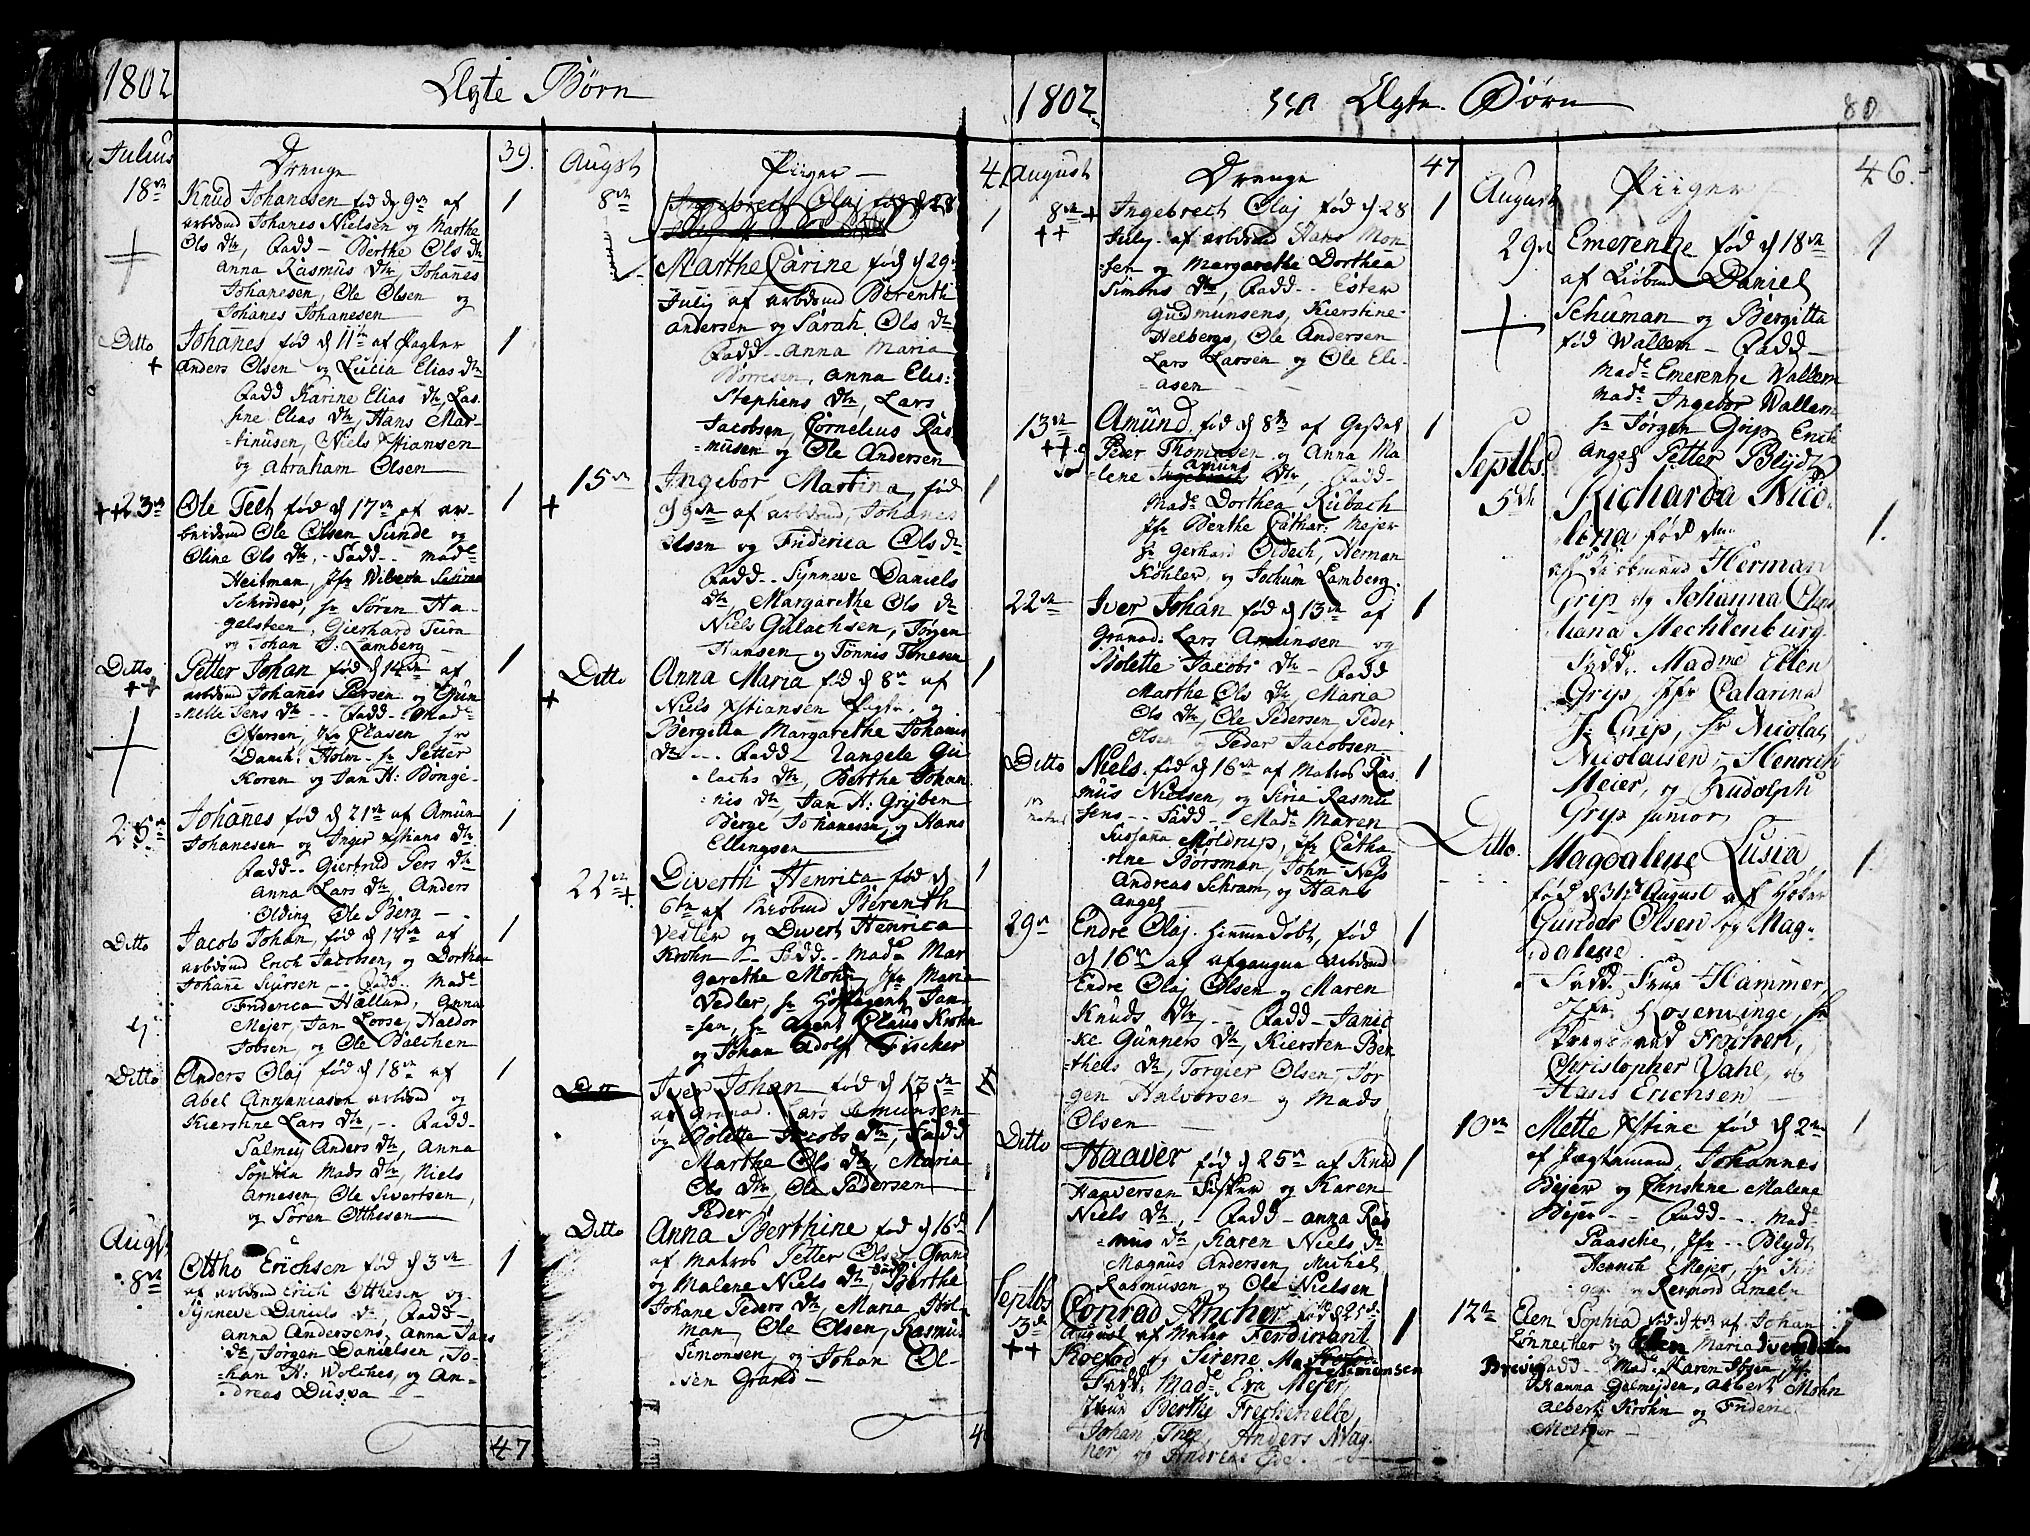 1802
Ægte Børn
Julius
Drenge
39.
18de
Knud Johanesen fød d 9de af
1
arbdsmd Johanes Nielsen og Marthe
Ols dtr, Fadd - Berthe Ols dtr
Anna Rasmus dtr, Johanes
Johanesen, Ole Olsen og
Johanes Johanesen
Ditto
Johanes fød d 11te af
1
Anders Olsen og Lucia Elias dtr
Fadd Karine Elias dtr, Las-
sine Elias dtr, Hans Mar-
tinusen, Niels Xstiansen
og Abraham Olsen
++23de
Ole Feet fød d 17de af ar-
1
beidsmd Ole Olsen Sunde og
Oline Ols dtr, - Fadd - Made
Heitman, Jfr
Schrøder, hr Søren Ha-
gelsteen, Gierhard
og Johan J: Lamberg
Ditto
Petter Johan fød d 14de af
1
arbdsmd Johanes Persen og Gun-
nelle Jens dtr - Fadd - Made
Ofersen, Clasen hr
Danck: Holm hr Petter
Koren og Jan H: Bonge-
25de
Johanes fød d 21de af Amun
1
Johanesen og Inger Xstians dtr
Fadd - Giertrud Pers dtr
Anna Lars dtr, Anders
Olding Ole Berg
Ditto
Jacob Johan, fød d 17de af
1
arbdsmd Erich Jacobsen, og Dorthea
Johane Siursen - Fadd. Made
Friderica Hælland, Anna
Mejer, Jan Loose, Haldor
Jobsen, og Ole Balchen
Ditto
Anders Olaj fød d 18de af
1
Abel Annaniasen arbdsmd og
Kierstine Lars dtr, - Fadd
Salmej Anders dtr, Anna
Sophia Mads dtr, Niels
Arnesen, Ole Sivertsen,
og Søren Otthesen
Augst
8de
Ottho Erichsen fød d 3de
1
af arbdsmd Erich Otthesen og
Synneve Daniels dtr, Fadd
Anna Andersens, Anna Jans
dtr, Jørgen Danielsen, Jo-
han H: Wolches, og An-
dreas Dusva
47
Augst
Piiger
4
8de
Ingebrech Olaj fød d 28
1
Marthe Carine fød d 29
July af arbdsmd Berenth
Andersen og Sarah Ols dtr
Fadd - Anna Maria
Børresen, Anna Elis:
Stephens dtr, Lars
Jacobsen, Cornelius Ras-
musen og Ole Andersen
15de
Ingebor Martina, fød
1
d 9de af arbdsmd, Johanes
Olsen og Friderica Ols dtr
Fadd - Synneve Daniels
dtr, Margarethe Ols dtr
Niels Gulachsen, Jørgen
Hansen og Tønnis Tønesen
Ditto
Anna Maria fød d 8de af
1
Niels Xstiansen, og
Bergitta Margarethe Johanis
dtr - Fadd - Rangela Gu-
lachs dtr, Berthe Johan
nis dtr, Jan H: Grijben
Børge Johanesen, og Hans
Ellingsen
22de
Diverth Henrica fød d
1
6te af Kiøbmd Berenth
Vedler og Divert Henrica
Krohn - Fadd - Made Mar
garethe Mohn, Jfr Maria
Vedler, hr Hofagent Jan-
sen, hr Agent Claus Krohn
og Johan Adolff Fischer
Ditto
Iver Johan fød d 13de
af Granad. Lars Amunsen
og Bolette Jacobs dtr, Fadd
Marthe Ols dtr, Maria
Ols dtr, Ole Pedersen
Peder
Ditto
Anna Berthine fød d 16de
1
af Matros Petter Olsen Grand
og Malene Niels dtr, Fadd Berthe
Johane Peders dtr, Maria Hol-
man, Ole Olsen, Rasmus
Simonsen, og Johan Ol-
sen Grand
4
1802
Ægte Børn
80
August
Drenge
47
8de +
++
Ingebrech Olaj fød d 28
1
July af arbdsmd Hans Mon-
sen og Margarethe Dorthea
Simons dtr, Fadd - Ester
Gudmunsens, Kierstine
Helbergs, Ole Andersen
Lars Larsen og Ole Eli-
asen
13de
Amund, fød d 8de af
1
Peder Thomasen og Anna Ma
lene Amuns dtr, Fadd
Made Dorthea Rubach
Jfr Benthe Cathar: Mejer
hr Gerhard Oldech, Herman
Køhler, og Jochum Lamberg.
22de
Iver Johan fød d 13de af
1
Granad. Lars Amunsen og
Bolette Jacobs dtr - Fadd
Marthe Ols dtr, Maria
Ols dtr, Ole Pedersen, Peder
Olsen og Peder Jacobsen
Ditto
Niels. fød d 16de af Matros Ras-
1
mus Nielsen, og Siri Rasmu
sens - Fadd - Made Maren
Susanna Moldrup, Jfr Catha
rine Borsman, John Næss
Andreas Schram, og Hans
Angel
29de
Endre Olaj. Hiemedøbt, fød
1
d 16de af afgangne arbdsmd
Endre Olaj Olsen og Maren
Knuds dtr, - Fadd - Janic
ke Gunners dtr, Kiersten Ben
thens dtr, Torgier Olsen, Jør
gen Halvorsen og Mads
Olsen
Ditto
Haaver fød d 25de af Knud
1
Haaversen Fisker og Karen
Niels dtr, - Fadd - Anna Ras
mus dtr, Karen Niels dtr
Magnus Andersen, Michel
Rasmusen og Ole Nielsen
Septbr
3de
++
Conrad Ancher fød d 25de
1
August af Ferdinant
Roestad og Sirene Ma
Simonsen
Fadd: Made Eva Mejer,
Berthe Frechenelle,
Johan Thee, Anders Wag-
ner, og Andreas Ege.
August
Piiger
46.
29de
Emerentze fød d 18de
1
af Kiøbmd Daniel
Schuman og Bergitta
fød Wallem - Fadd
Made Emerentze Wallem
Made Ingebor Wallem
hr Jørgen Grip Erich
Angel Petter Blydt
Septbr
5te
Richarda Nico-
1.
lina, fød den
af Kiøbmand Herman
Grip og Johanna Chris
tiana Mechlenburg.
Fadd. Madme Ellen
Grip, Jfr Catarina
J: Grip, hr Nicolai
Nicolaisen, Henrich
Meier, og Rudolph
Grip junior
Ditto.
Magdalene Lusia,
1.
fød d 31te August af
Gunder Olsen og Mag-
dalene
Fadd. Frue Hammer,
Jfr. Rosenvinge, hr
Frøchen,
Christopher Vahl, og
Hans Erichsen
10de
Mette Xstine fød d 2de
1
af Jægtemand, Johannes
Bejer og Christine Malene
Bejer - Fadd - Made
Paasche, Jfr - Blydt
Henrich Mejer,
og Reinhord Amel
12te
Elen Sophia fød d 4de af Johan
1
Lønnecker og Elen Maria Ivers dtr
Brevig
Fadd - Made Karen Ibgen
Hanna Gelmejden, Albert Mohn
Albert Krohn og Frideric
Meltzer